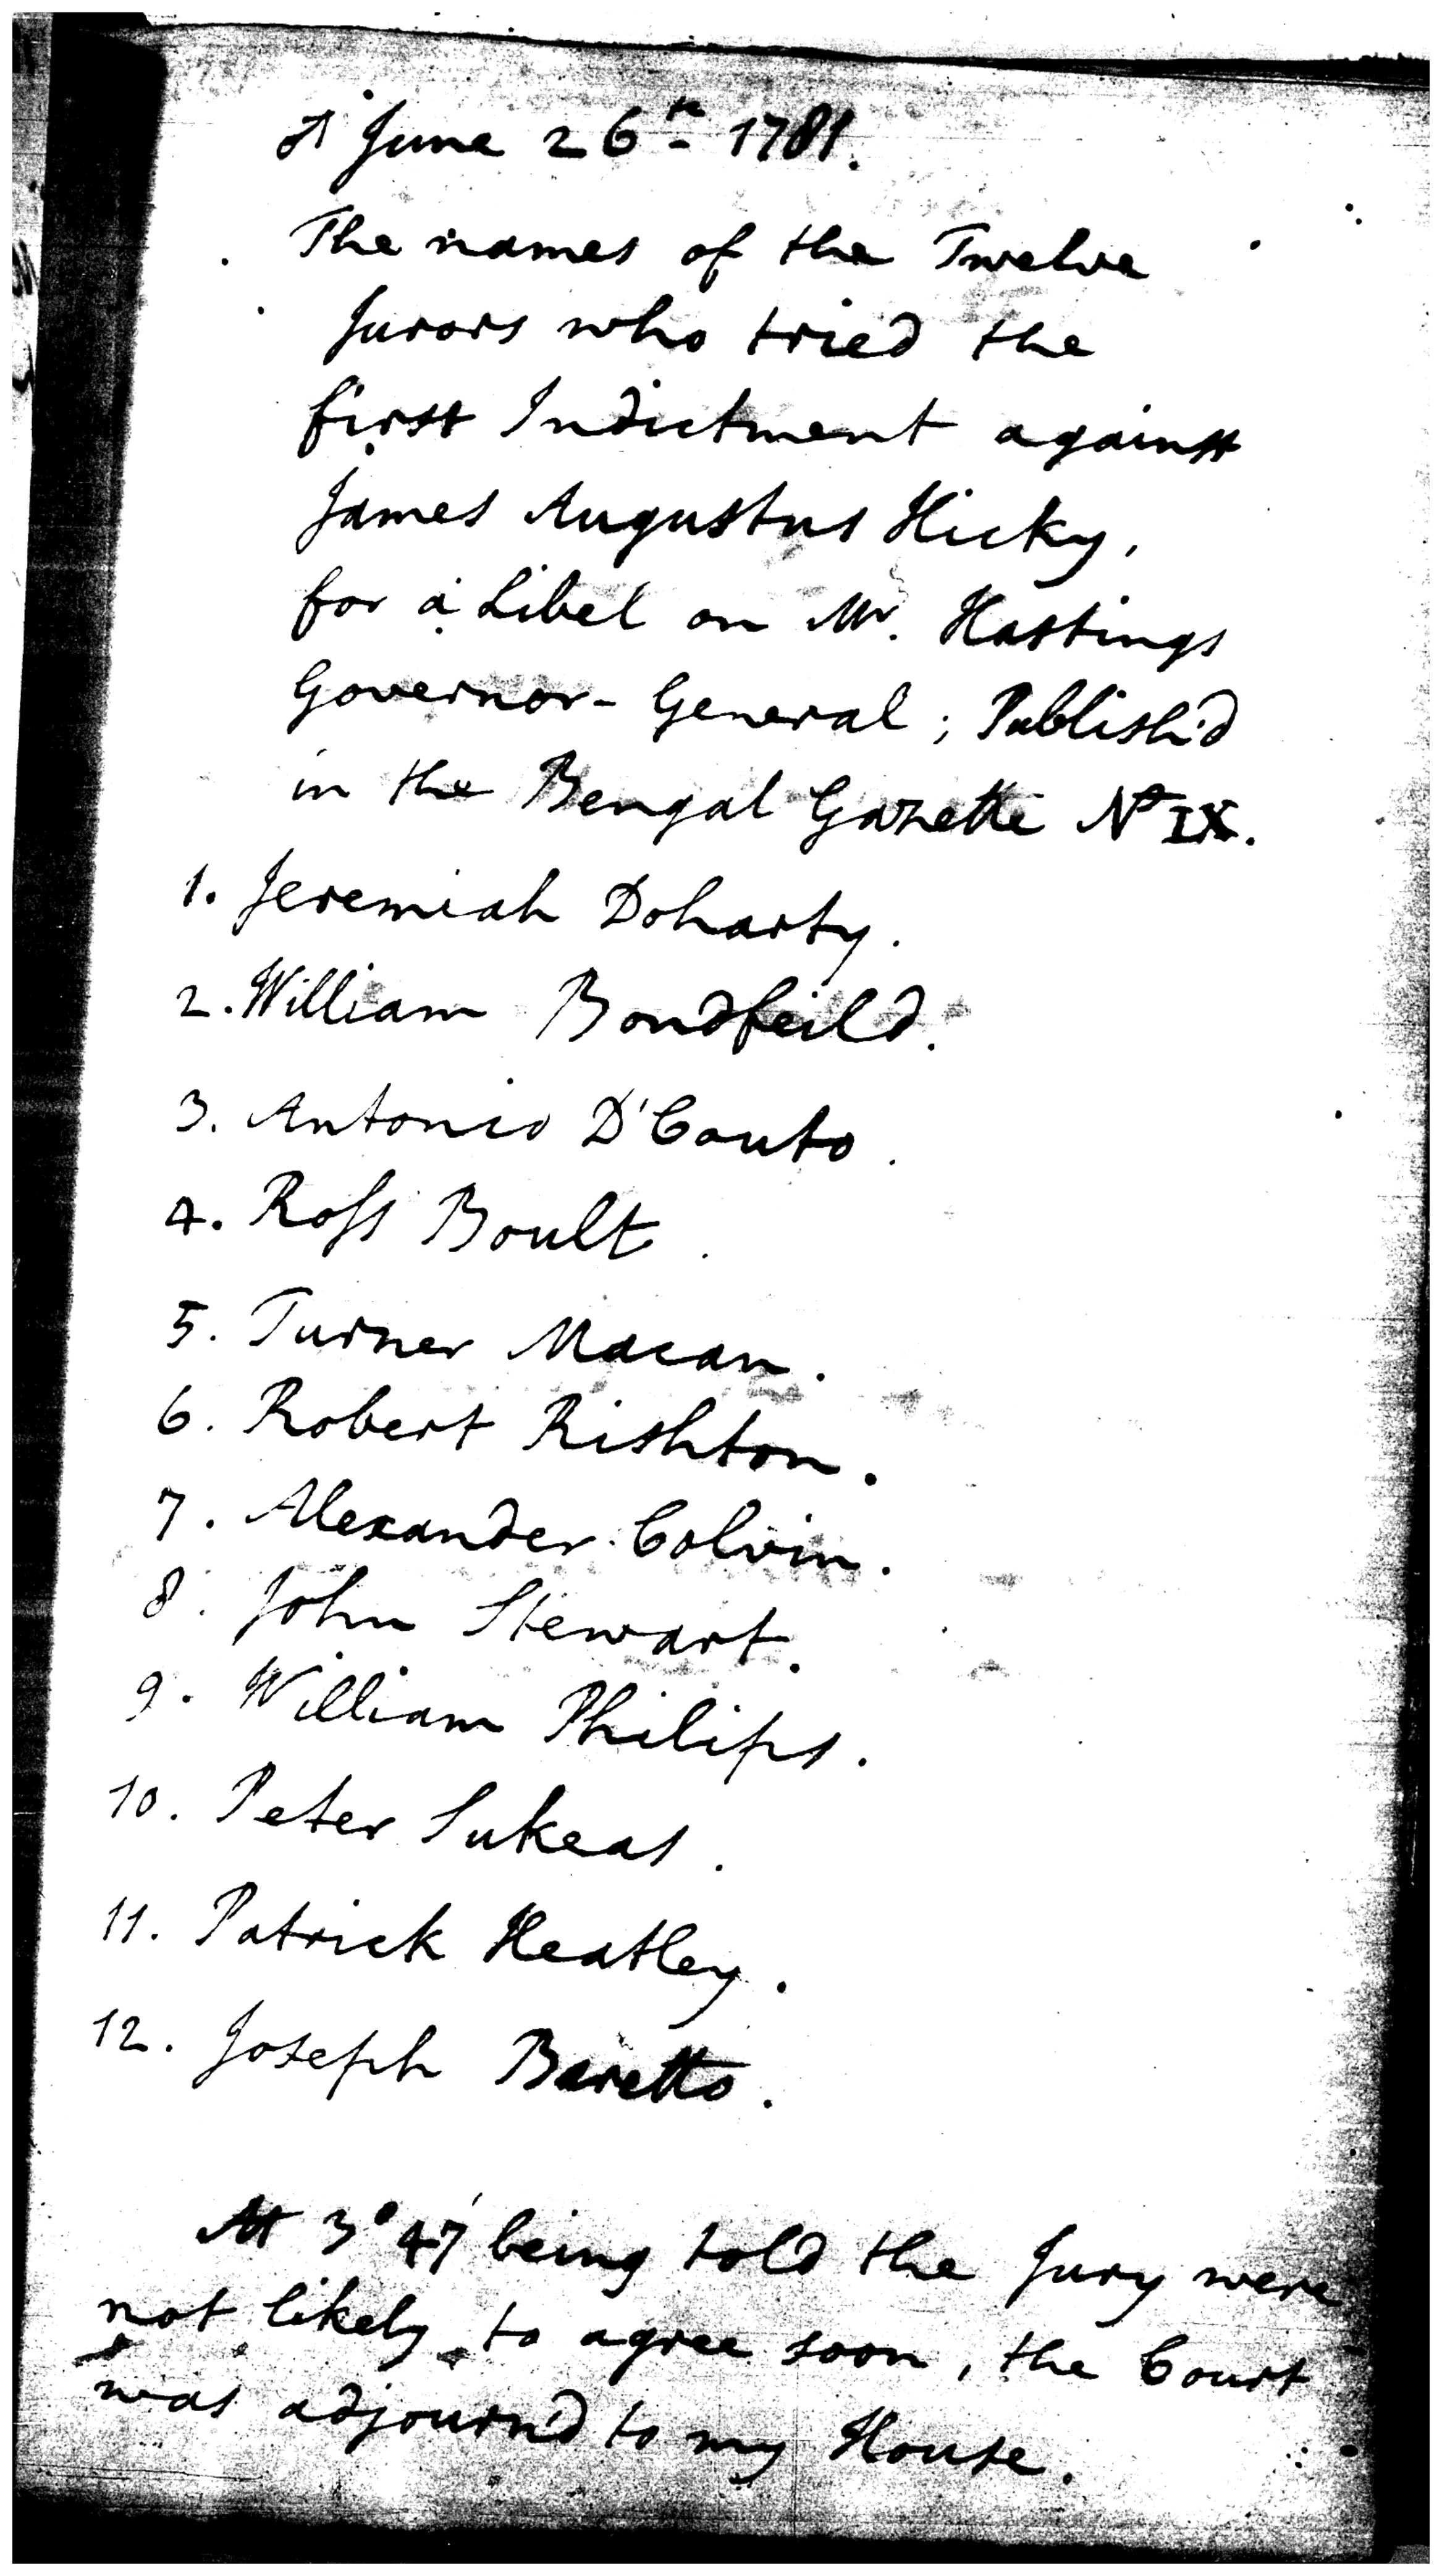 ♂ June 26th 1781.
The names of the Twelve
Jurors who tried the
first Indictment against
James Augustus Hicky,
for a Libel on Mr. Hastings
Governor-General; Publish'd
in the Bengal Gazette No IX.
1. Jeremiah Doharty.
2. William Bondfeild.
3. Antonio D'Couto.
4. Roſs Boult.
5. Turner Macan.
6. Robert Rishton.
7. Alexander Colvin.
8. John Stewart.
9. William Philips.
10. Peter Sukeas.
11. Patrick Heatley.
12. Joseph Baretto.
At 3° 47' being told the Jury were
not likely to agree soon, the Court
was adjourn'd to my House.